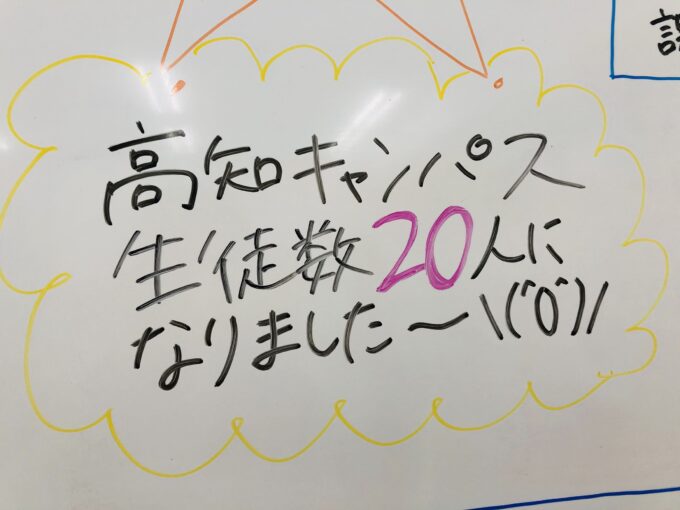 高知キャンパス
生徒数20人に
なりました～\(^o^)/